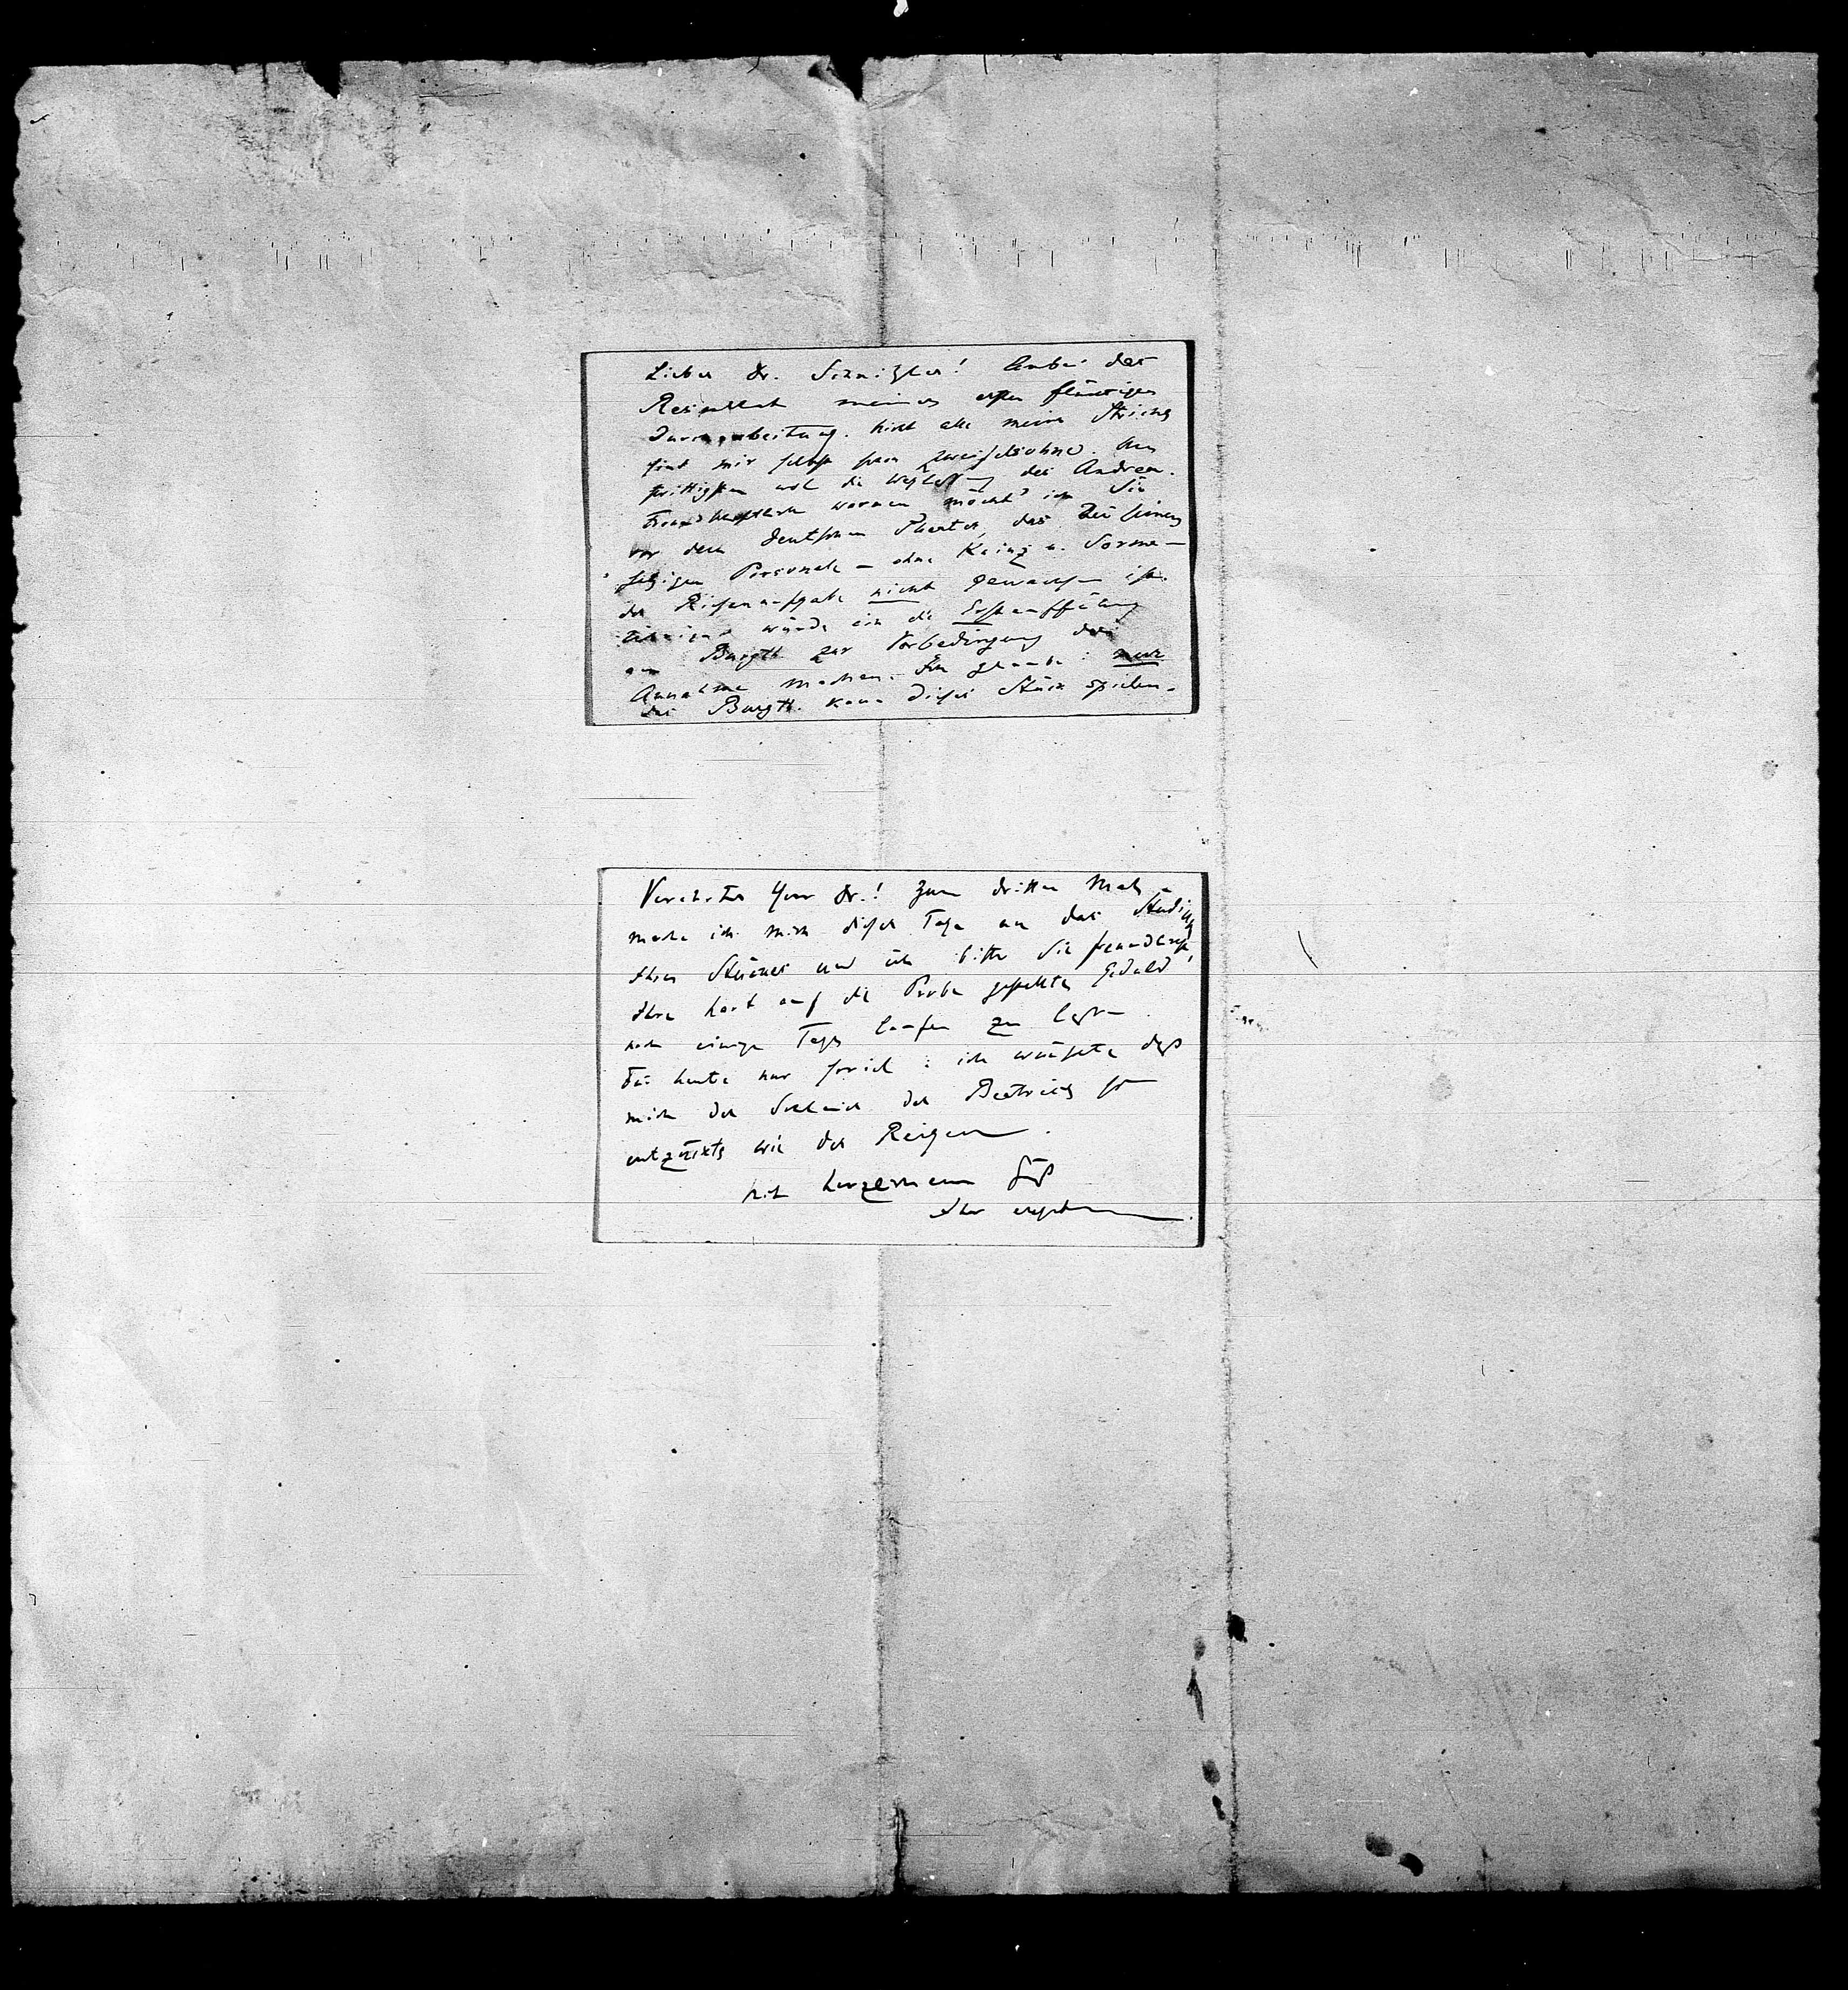 Lieber Dr. Schnitzler! Anbei das
Resultat meiner ersten flüchtigen
Durcharbeitung. Nicht alle meine Striche
sind mir selbst ganz zweifelsohne. Am
strittigsten wol die Weglassung des Andrea.
Freundschaftlich warnen möcht' ich Sie
vor dem Deutschen Theater, das bei seinem
jetzigen Personale – ohne Kainz u. Sorma –
der Riesenaufgabe nicht gewachsen ist.
würde ich die Erstaufführung
am Burgth zur Vorbedingung der
Annahme machen. Ich glaube: nur
das Burgth. kann dieses Stück spielen.
Verehrter Herr Dr.! Zum dritten Mal
mache ich mich dieser Tage an das Studium
Ihres Stückes und ich bitte Sie freundlichst,
Ihre hart auf die Probe gestellte Geduld
noch einige Tage laufen zu lassen.
Für heute nur soviel: ich wünschte daß
mich der Schleier der Beatrice so
entzückte wie der Reigen.
Mit herzlichem Gruß
Ihr ergebener